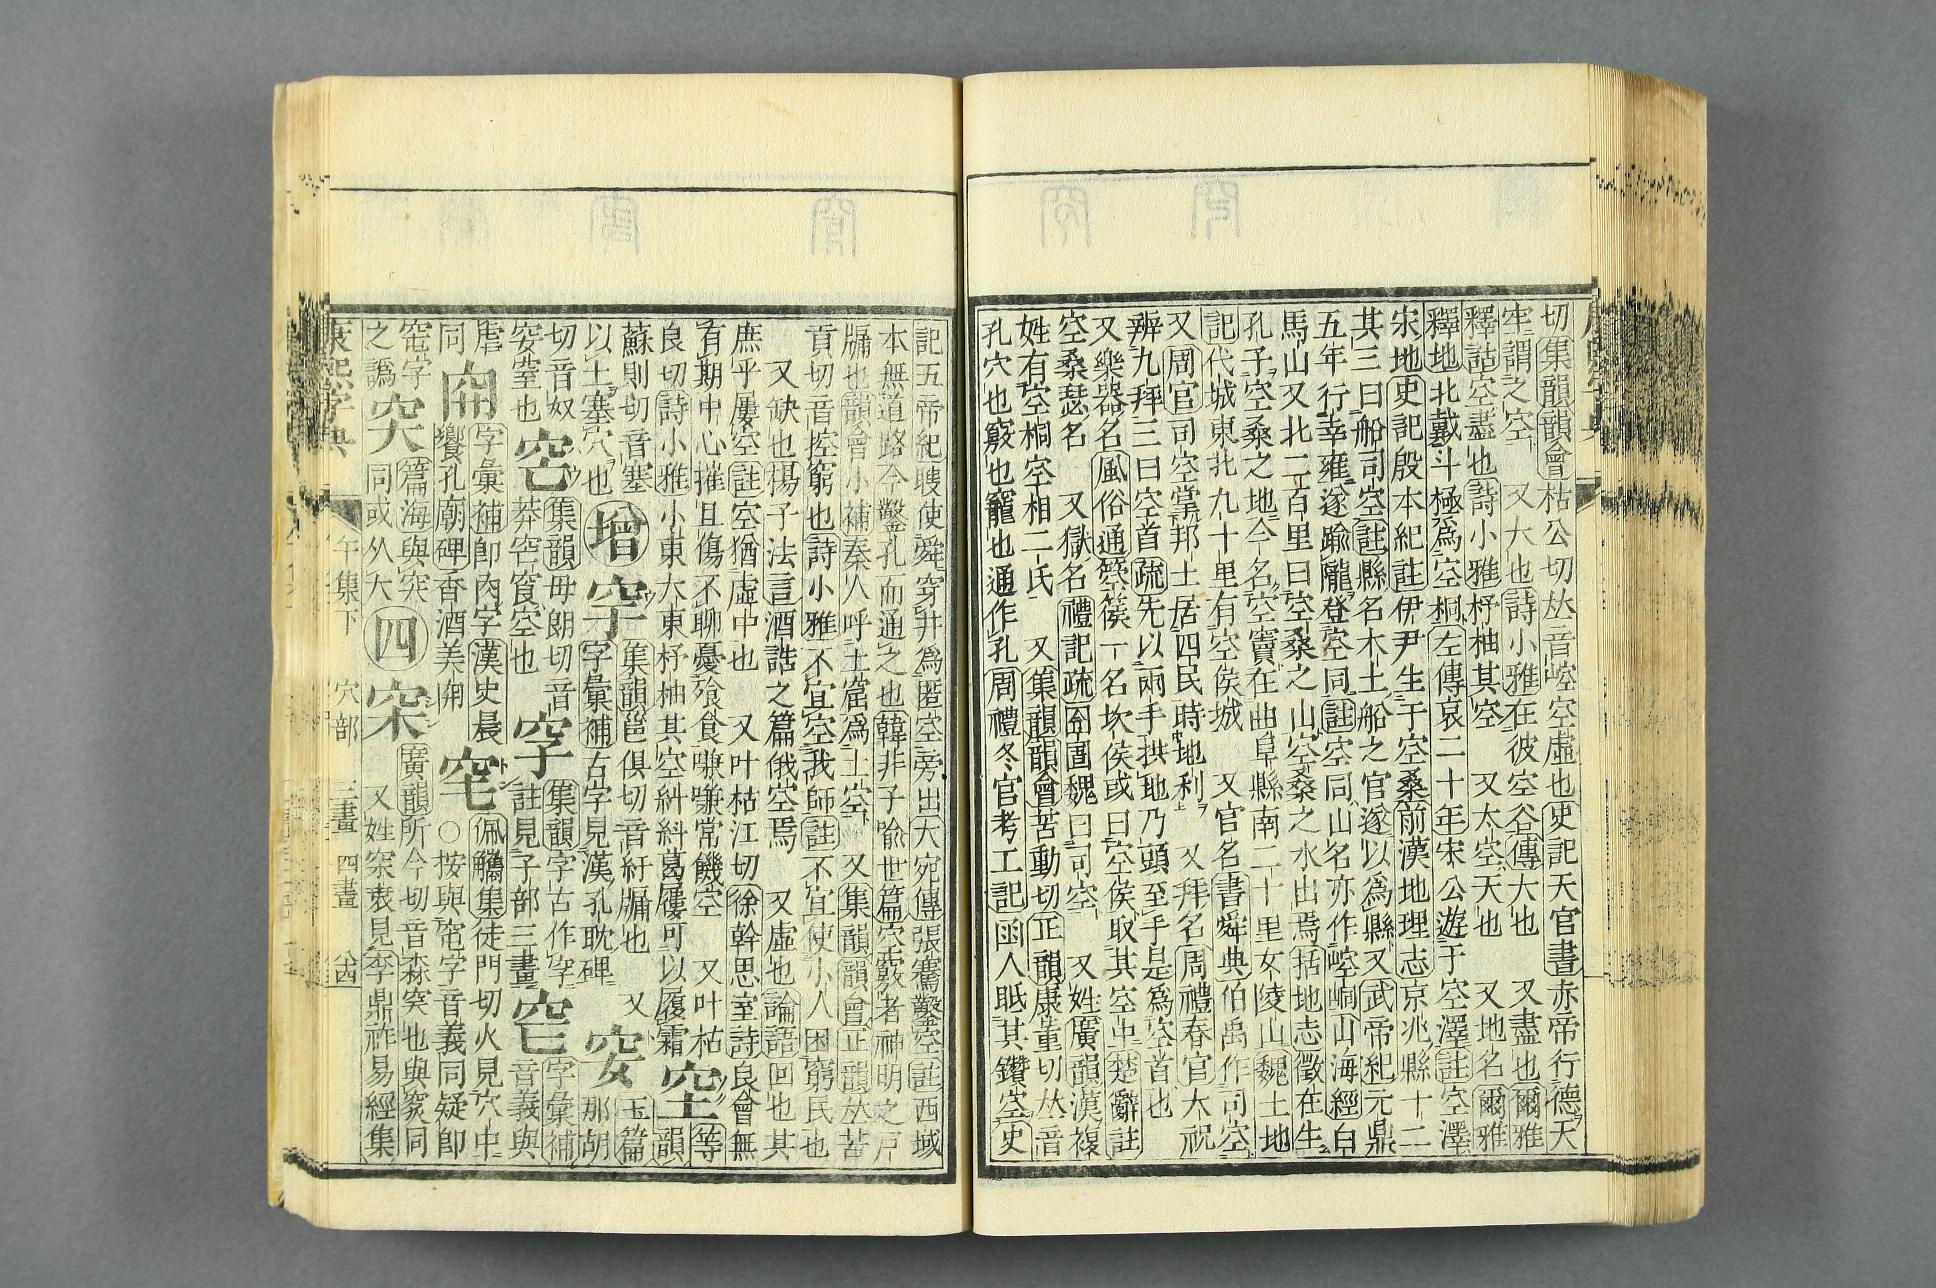 切集韻韻會枯公切𠀤音崆空虛也史記天官書赤帝行德天
牢謂之空 又大也詩小雅在彼空谷傳大也 又盡也爾雅
釋詁空盡也詩小雅杼柚其空 又太空天也 又地名爾雅
釋地北戴斗極爲空桐左傳哀二十年宋公遊于空澤註空澤
宋地史記殷本紀註伊尹生于空桑前漢地理志京兆縣十二
其三曰船司空註縣名本主船之官遂以爲縣又武帝紀元鼎
五年行幸雍遂踰隴登空同註空同山名亦作崆峒山海經白
馬山又北二百里曰空桑之山空桑之水出焉括地志徵在生
孔子空桑之地今名空竇在曲阜縣南二十里女陵山魏土地
記代城東北九十里有空侯城 又官名書舜典伯禹作司空
又周官司空掌邦土居四民時地利 又拜名周禮春官大祝
辨九拜三曰空首疏先以兩手拱地乃頭至手是爲空首也
又樂器名風俗通空篌一名坎侯或曰空侯取其空中楚辭註
空桑瑟名 又獄名禮記疏囹圄魏曰司空 又姓廣韻漢複
姓有空桐空相二氏 又集韻韻會苦動切正韻康董切𠀤音
孔穴也竅也竉也通作孔周禮冬官考工記函人眡其鑽空史
記五帝紀瞍使舜穿井爲匿空旁出大宛傳張騫鑿空註西域
本無道路今鑿孔而通之也韓非子喻世篇空竅者神明之戸
牖也韻會小補秦人呼土窟爲土空 又集韻韻會正韻𠀤苦
貢切音控窮也詩小雅不宜空我師註不宜使小人困窮民也
又缺也楊子法言酒誥之篇俄空焉 又虛也論語回也其
庶乎屢空註空猶虛中也 又叶枯江切徐幹思室詩良會無
有期中心摧且傷不聊憂飱食嗛嗛常饑空 又叶枯
良切詩小雅小東大東杼柚其空糾糾葛屨可以履霜 𡨄等韻
蘇則切音塞 窏集韻邕俱切音紆牖也 又玉篇
以土塞穴也 增 穻字彙補古字見漢孔耽碑 𡚼那胡
切音奴 𥤮集韻母朗切音 㝊集韻字古作㝊字彙補
穾窒也 莽窂𥥍空也 註見子部三畫 音義與
虐同 𥤷字彙補卽肉字漢史晨饗孔廟碑香酒美𥤷 穻佩觿集徒門切火見穴中 ○按與窀字音義同疑卽
窀字之譌 㝐篇海與突同或从大 四 𥥆廣韻所今切音森突也與𥥍同 又姓𥥆衷見李鼎祚易經集
康熙字典 午集下 穴部 三畫 四畫 十四